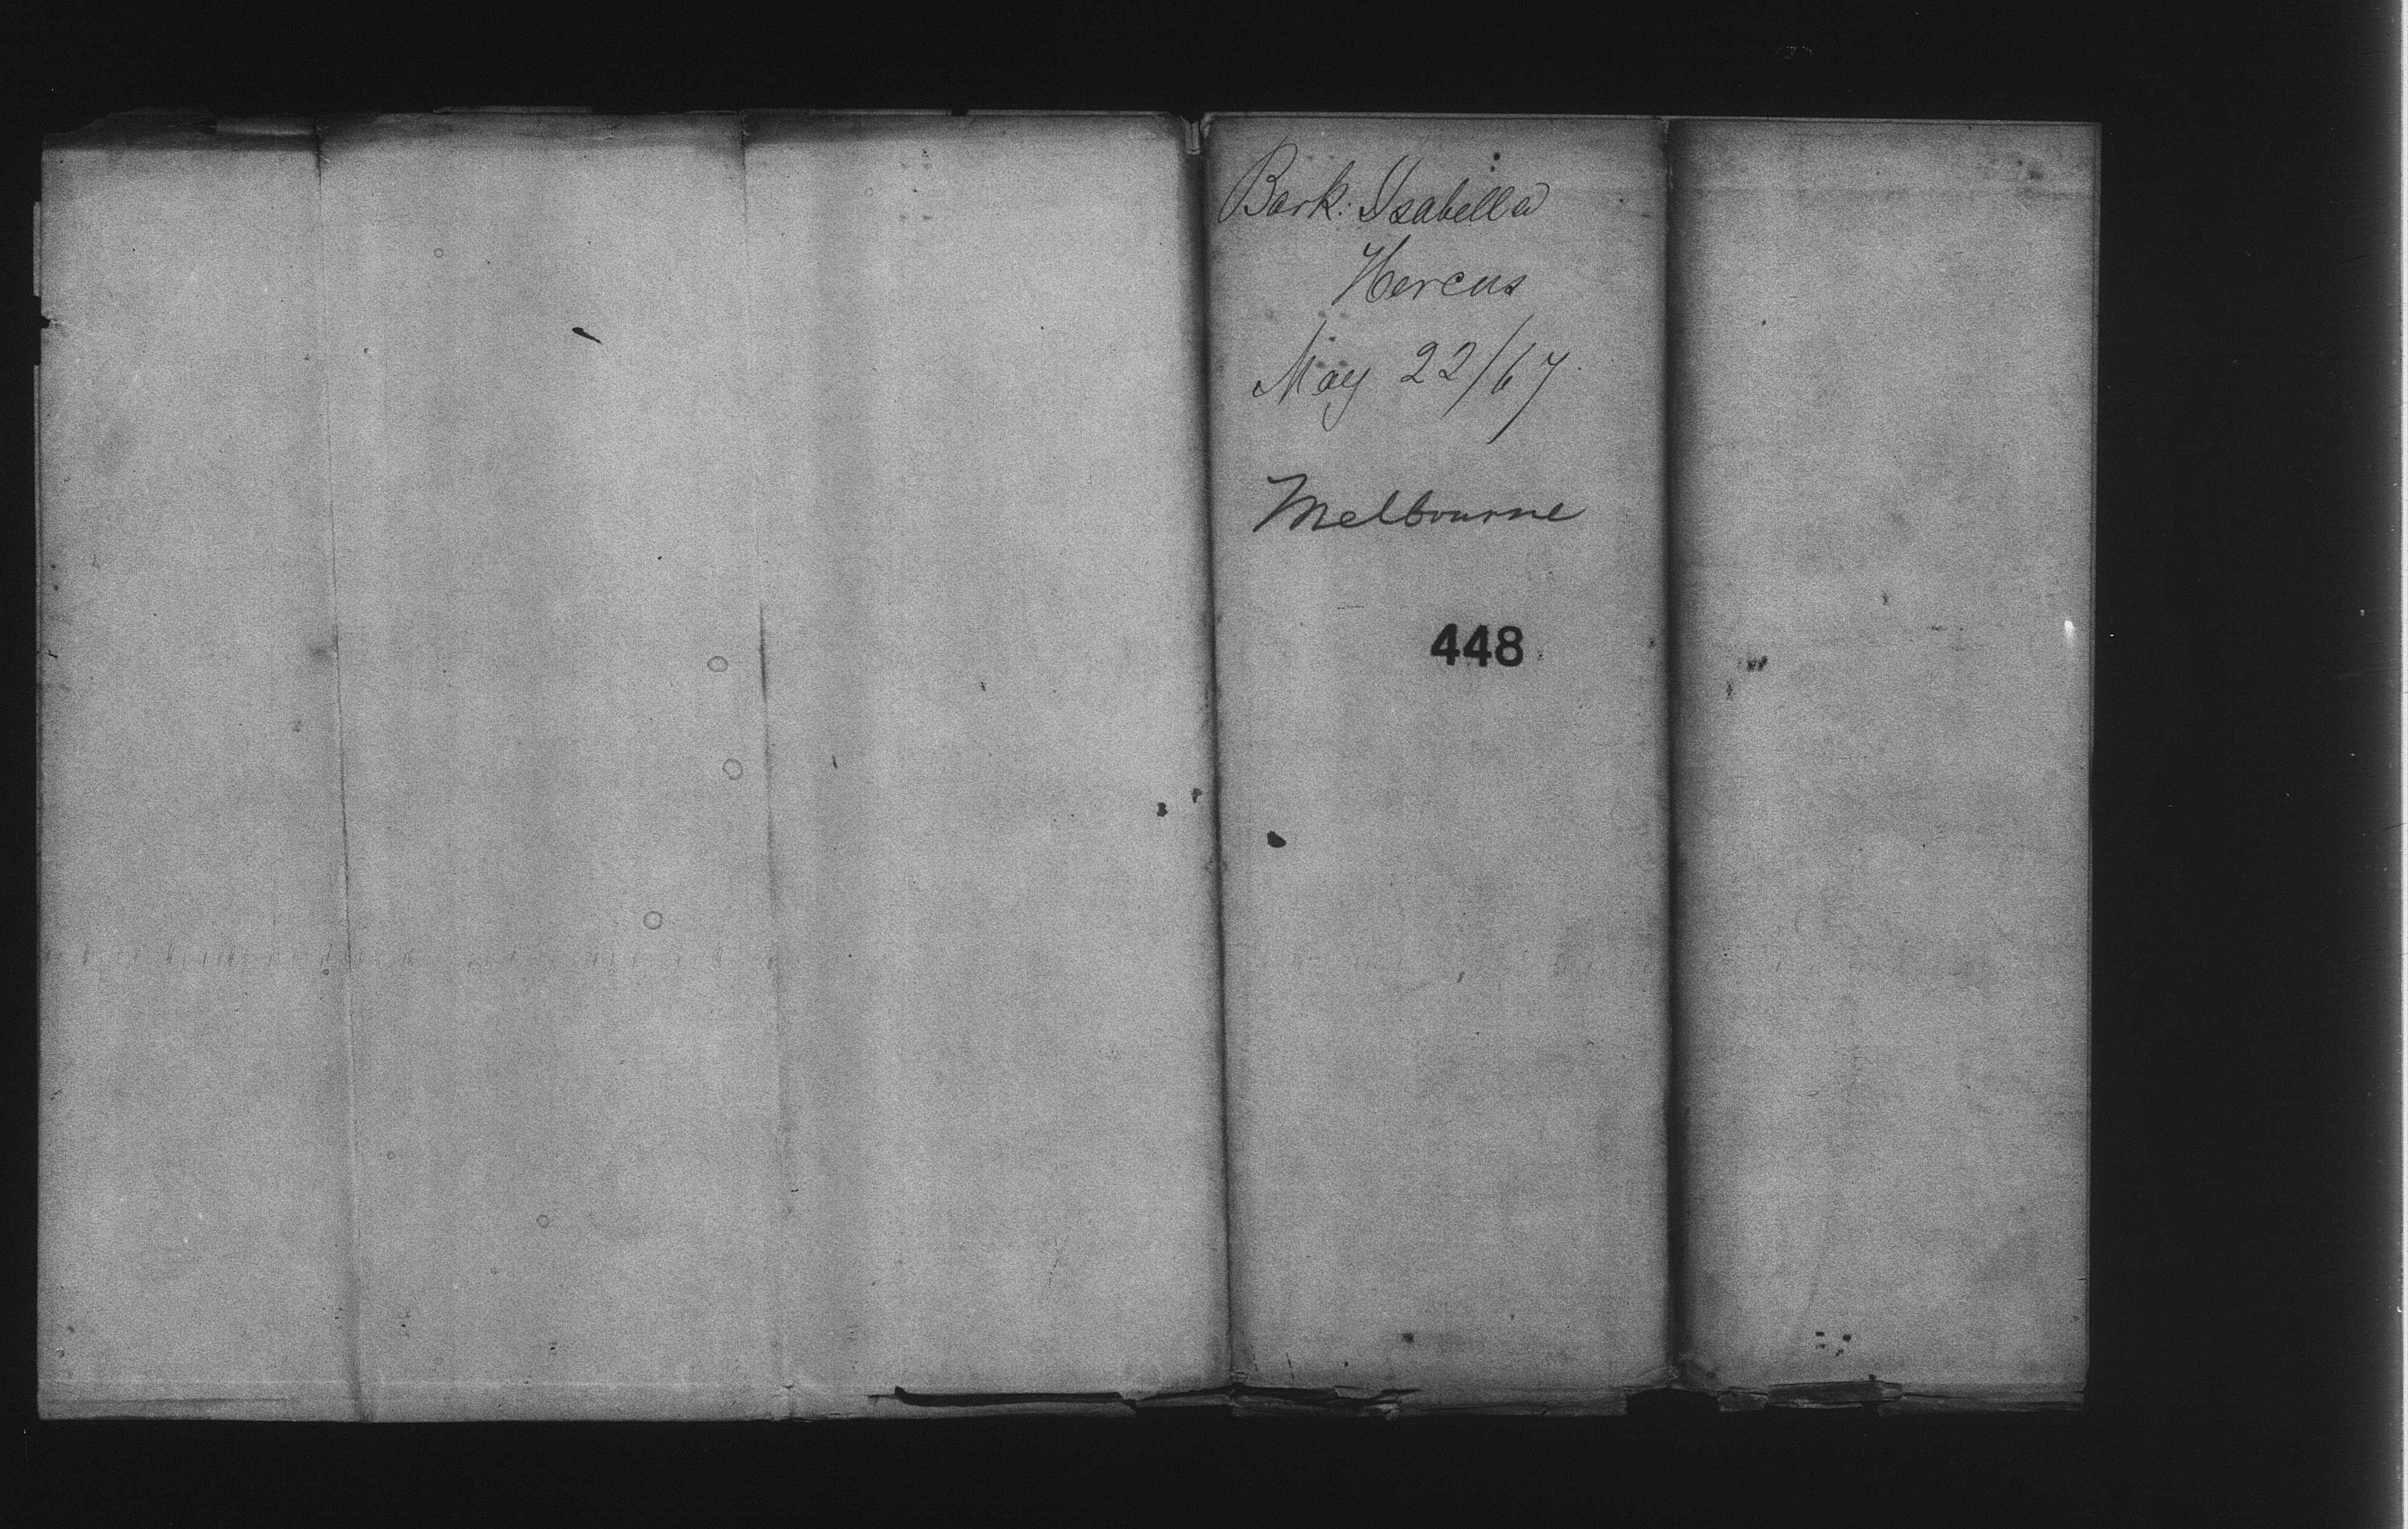 Bark: Isabella
Hercus
May 22/67
Melbourne
448